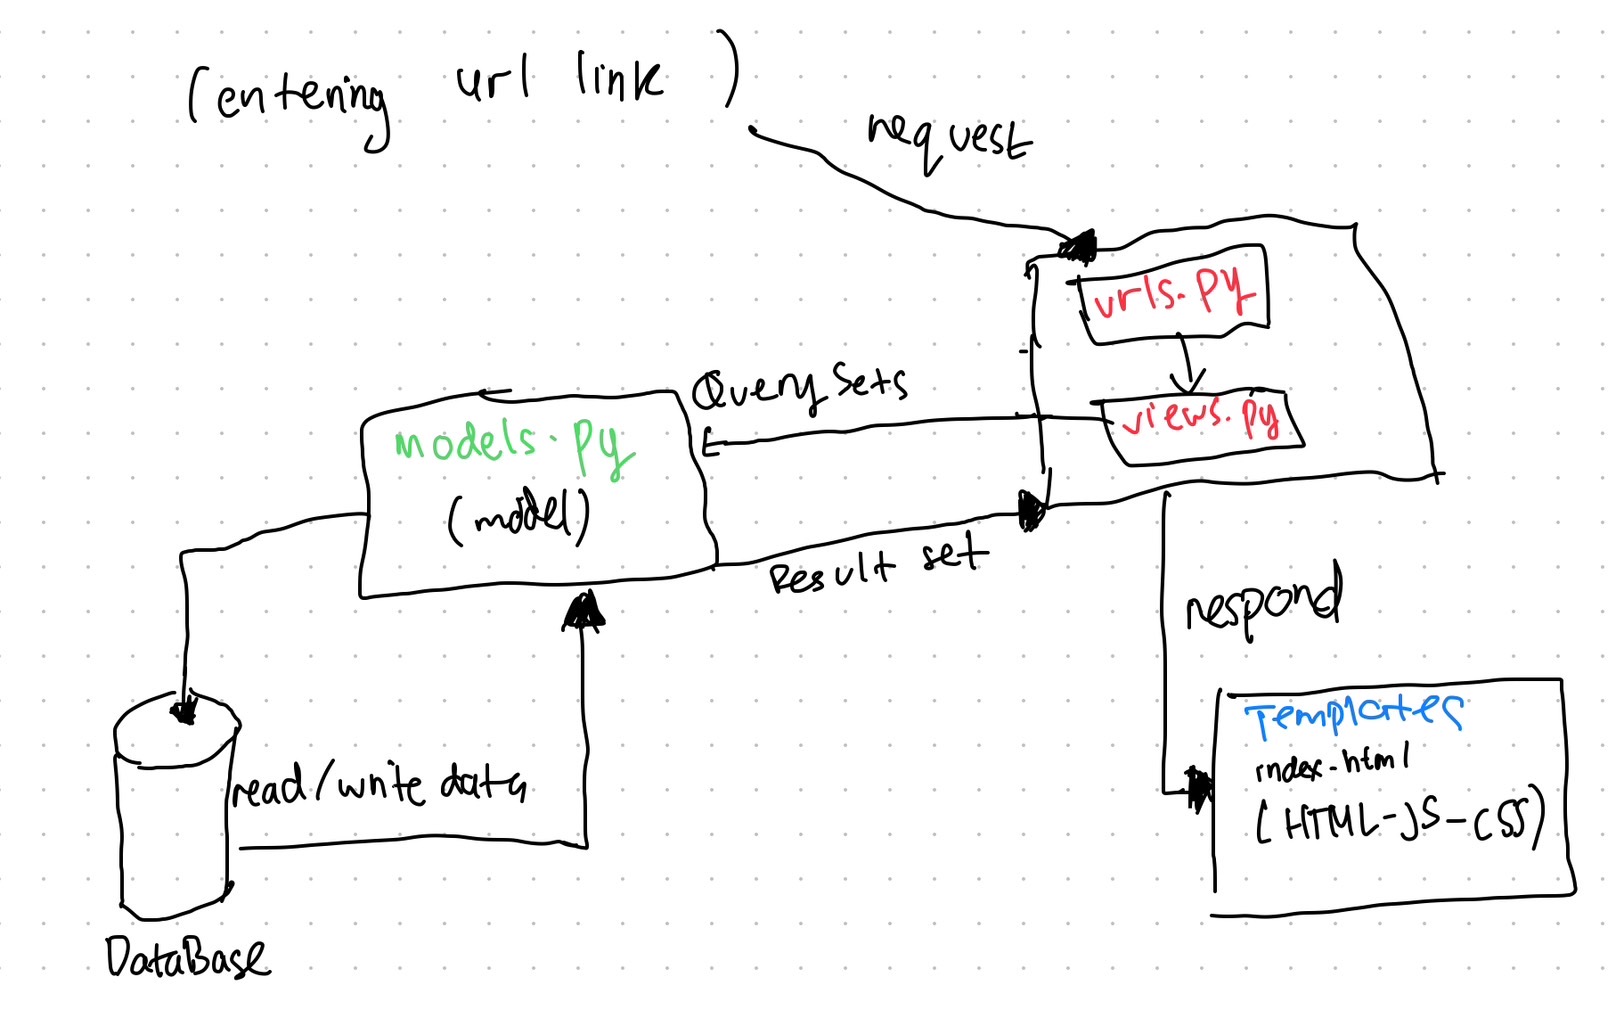 (entering url link )
request
urls.py
Query Sets
views.py
models.py
(model)
Result set
respond
Templates
index.html
(HTML-JS-CSS)
read/write data
DataBase